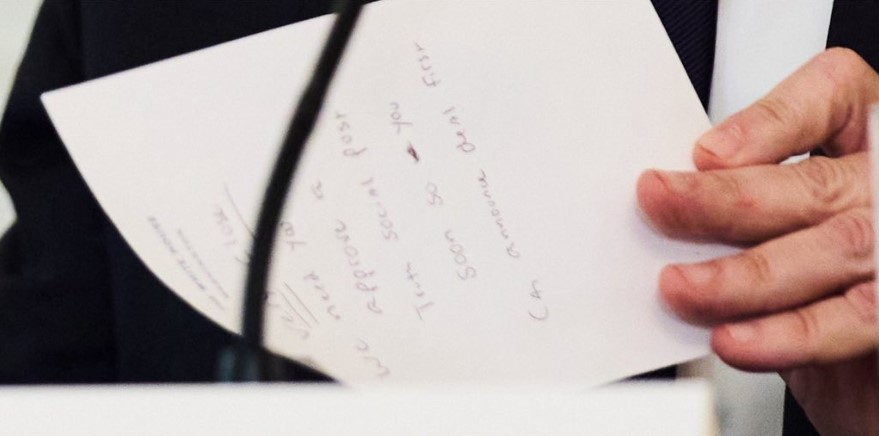 THE WHITE HOUSE
Very close
We need you to
approve a
Truth social post
soon so you
can announce deal first